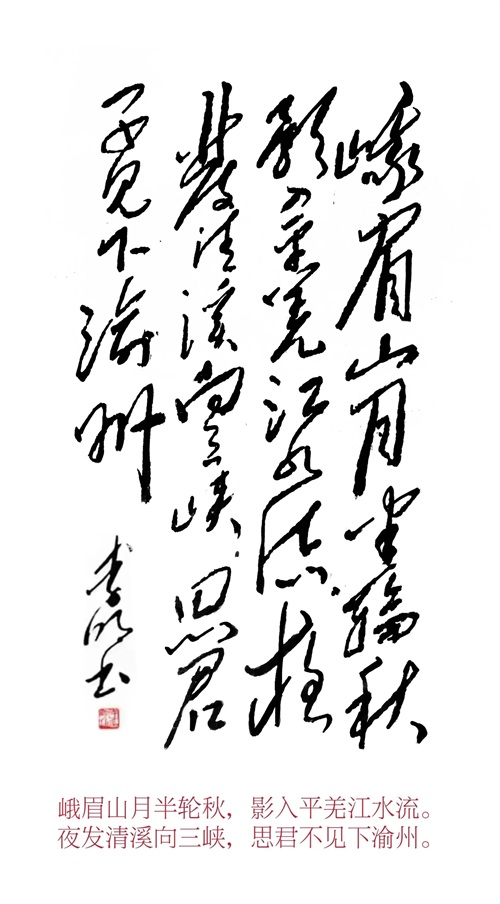 峨眉山月半輪秋
影入平羌江水流夜
發清溪向三峡思君
不見下渝州
李明书
峨眉山月半轮秋，影入平羌江水流。
夜发清溪向三峡，思君不见下渝州。